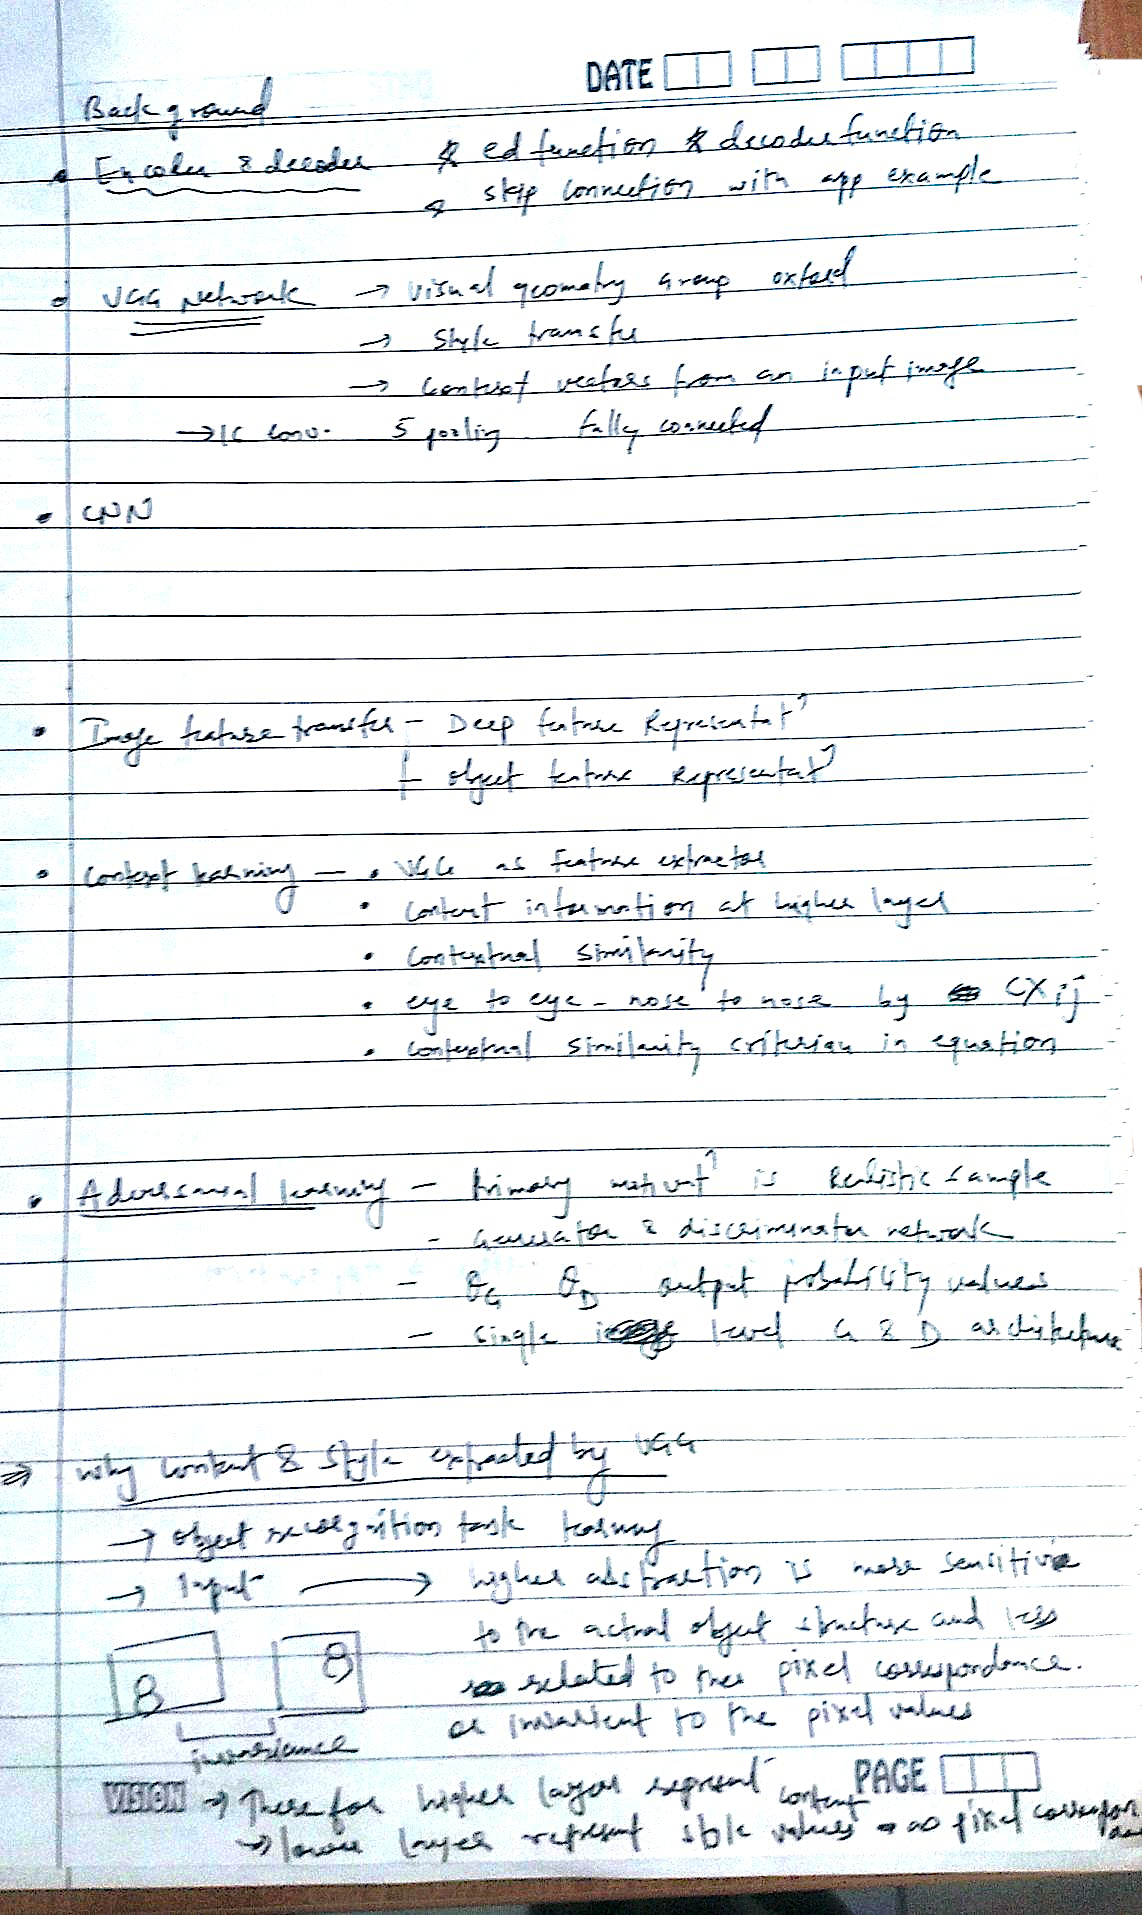 DATE
Background
Encoder & decoder * ed function * decoder function
skip connection with app example
VGG Network → Visual geometry Group oxford
→ Style transfer
→ Context vectors from an input image
→ 16 conv. 5 pooling fully connected
CNN
Image feature transfer - Deep feature Representatⁿ
- object feature Representatⁿ
Context learning - • VGG as Feature extractor
• Content information at higher layer
• Contextual Similarity
• eye to eye - nose to nose by CX ij
• contextual similarity criterian in equation
Adversarial learning - Primary motivatⁿ is Realistic sample
- Generator & discriminator network
- θG θD output probability values
- Single level G & D architecture
⇒ Why content & Style extracted by VGG
→ object recognition task learning
→ Input → higher abstraction is more sensitive
to the actual object structure and less
related to the pixel correspondance.
8 8
or invarient to the pixel values
invariance
VISION PAGE
→ There for higher layer represent content
→ lower layer represent style values → no pixel correspon